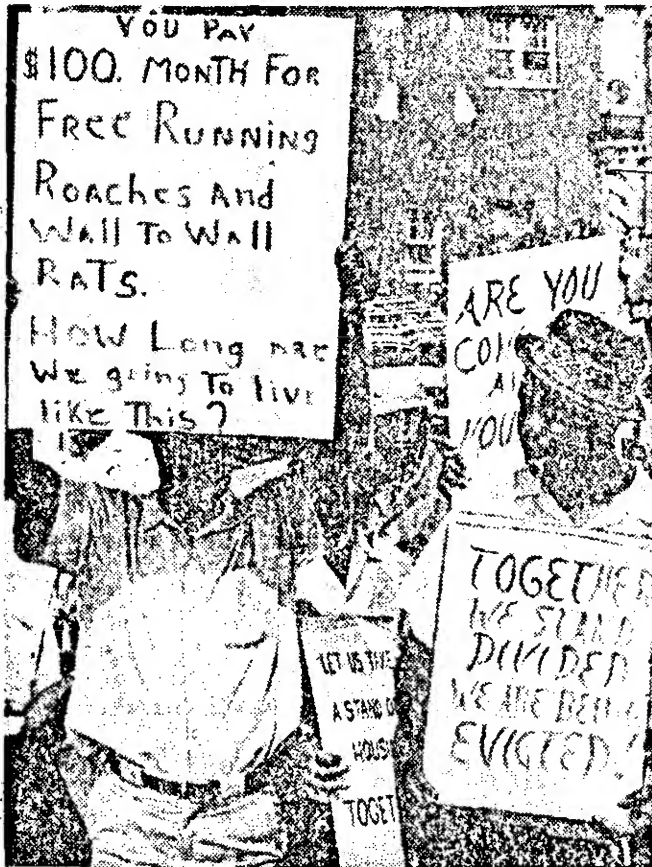 YOU PAY
$100. MONTH FOR
FREE RUNNING
ROACHES AND
WALL TO WALL
RATS.
HOW LONG ARE
WE going To live
like This?
ARE YOU
TOGETHER
WE STAND
DIVIDED
WE ARE BEING
EVICTED!
LET US TAKE
A STAND
TOGET